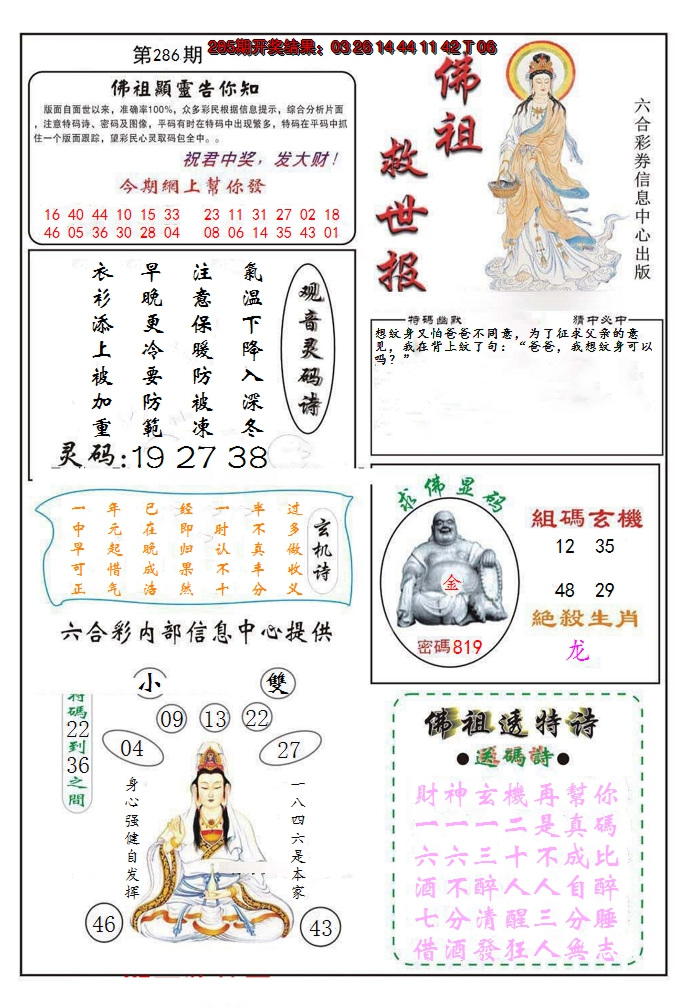 第286期
285期开奖结果：03 26 14 44 11 42 T 06
佛祖顯靈告你知
版面自面世以来，准确率100%，众多彩民根据信息提示，综合分析片面
，注意特码诗、密码及图像，平码有时在特码中出现繁多，特码在平码中抓
住一个版面跟踪，望彩民心灵取码包全中。。
祝君中奖，发大财！
今期網上幫你發
16 40 44 10 15 33 23 11 31 27 02 18
46 05 36 30 28 04 08 06 14 35 43 01
佛祖
救世报
六合彩券信息中心出版
观音灵码诗
氣温下降入深冬
注意保暖防被凍
早晚更冷要防範
衣衫添上被加重
灵码:19 27 38
特碼幽默 猜中必中
想紋身又怕爸爸不同意，为了征求父亲的意
見，我在背上紋了句：“爸爸，我想紋身可以
吗？”
玄机诗
过多做收义
半不真丰分
一时认不十
经即归果然
已在晚成浩
年元起惜气
一中早可正
六合彩内部信息中心提供
求佛显码
金
密碼819
組碼玄機
12 35
48 29
絶殺生肖
龙
小 雙
特碼22到36之間
09 13 22
04 27
身心强健自发挥
一八四六是本家
46 43
佛祖透特诗
●送碼詩●
財神玄機再幫你
一一一二是真碼
六六三十不成比
酒不醉人人自醉
七分清醒三分睡
借酒發狂人無志